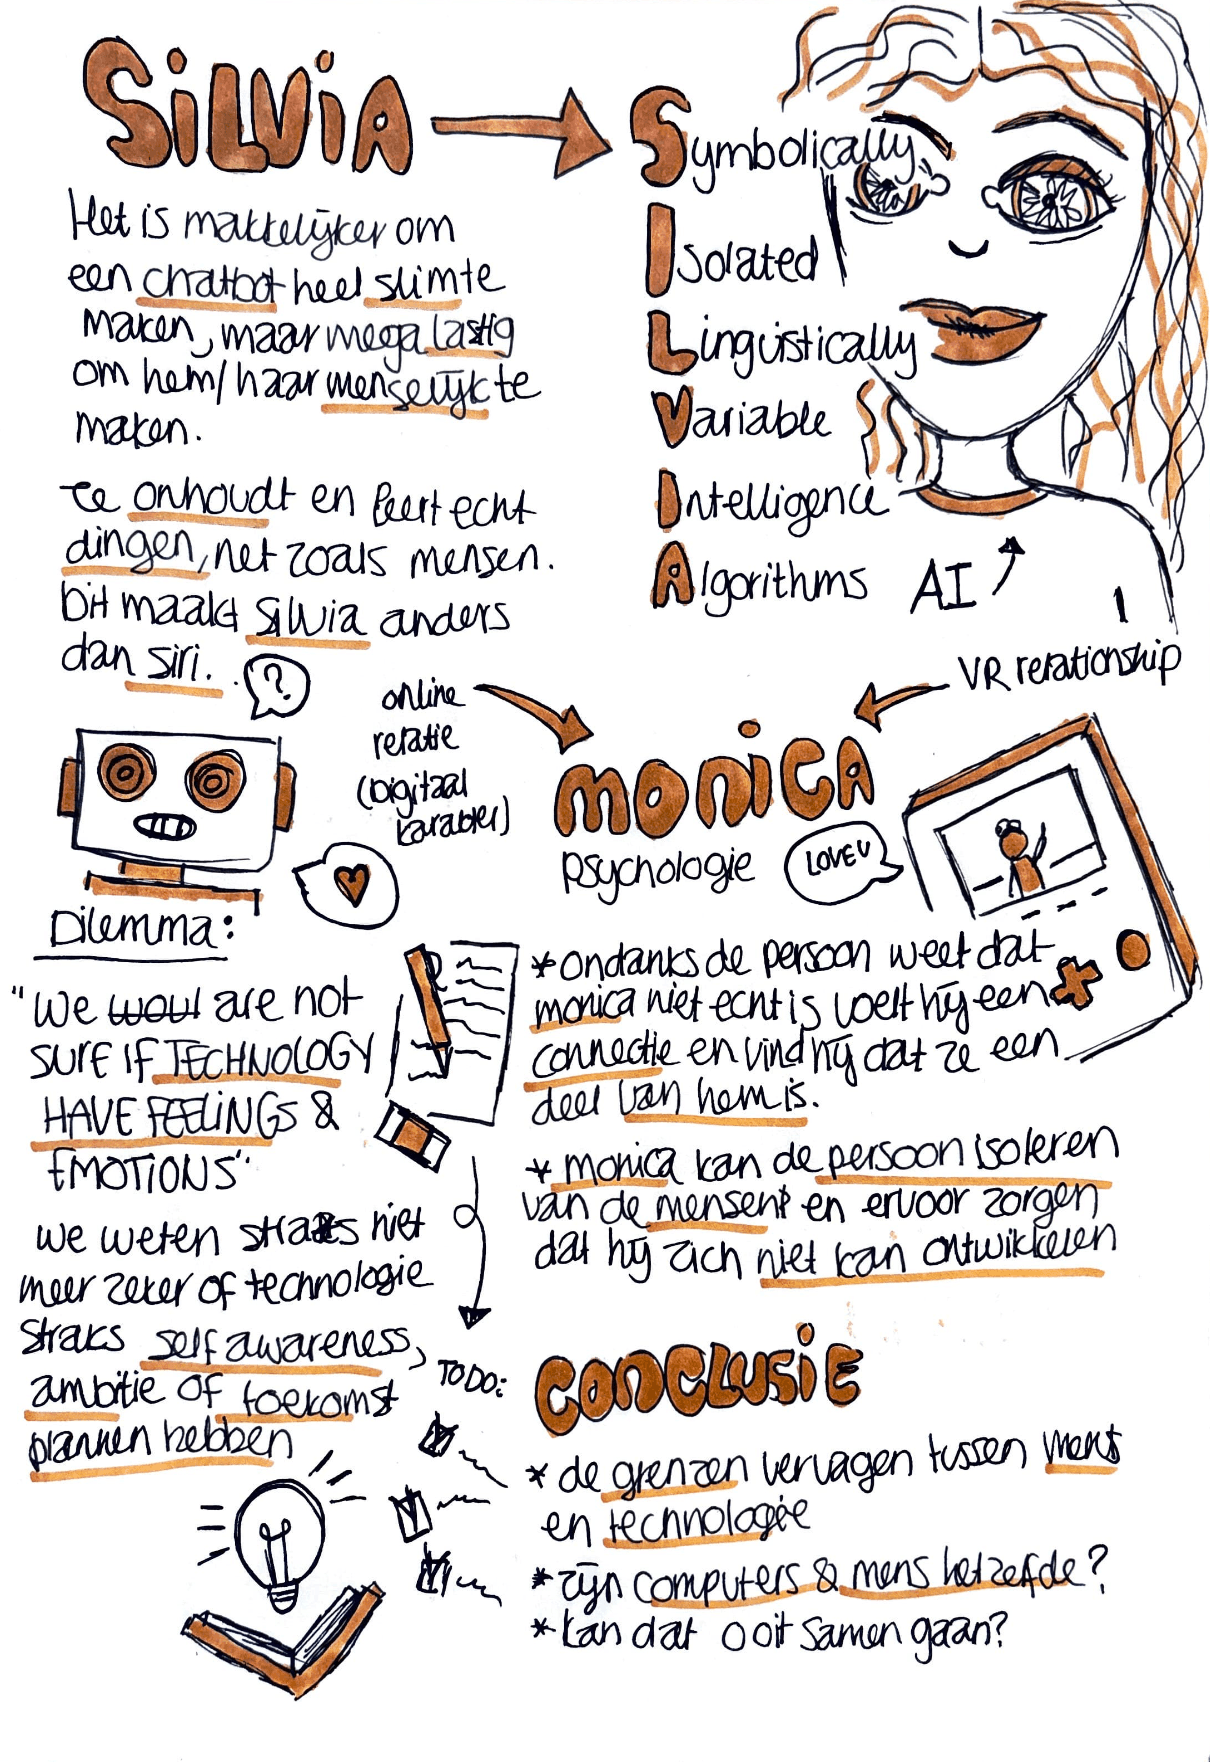 SiLViA
Symbolically
Isolated
Linguistically
Variable
Intelligence
Algorithms
AI
Het is makkelijker om
een chatbot heel slim te
maken, maar mega lastig
om hem/haar menselijk te
maken.
Ze onhoudt en leert echt
dingen, net zoals mensen.
Dit maakt Silvia anders
dan siri.
?
online
relatie
(Digitaal
karakter)
VR relationship
MONiCA
psychologie
LOVE U
Dilemma:
"We woul are not
SURE IF TECHNOLOGY
HAVE FEELiNGS &
EMOTIONS"
We weten straks niet
meer zeker of technologie
straks self awareness,
ambitie of toekomst
plannen hebben
* ondanks de persoon weet dat
monica niet echt is voelt hij een
connectie en vind hij dat ze een
deel van hem is.
* monica kan de persoon isoleren
van de mensen en ervoor zorgen
dat hij zich niet kan ontwikkelen
TO DO:
CONCLUSiE
* de grenzen vervagen tussen mens
en technologie
* zijn computers & mens hetzelfde?
* kan dat ooit samen gaan?